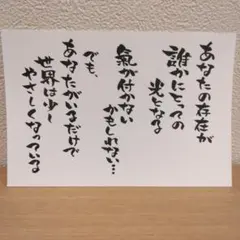 あなたの存在が
誰かにとっての
光となる
氣が付かない
かもしれない…
でも、
あなたがいるだけで
世界は少し
やさしくなっている